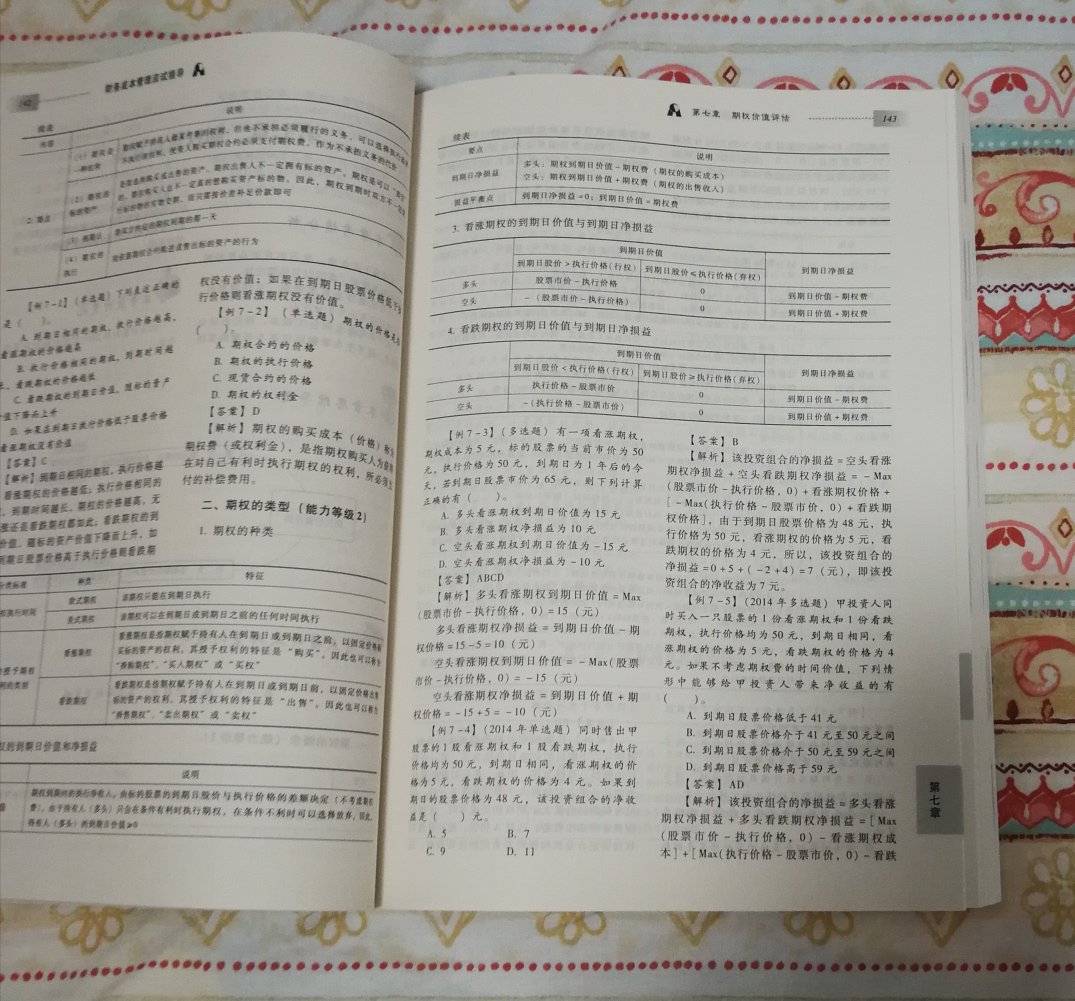 财务成本管理应试指导
142
续表
内容
说明
2. 要点
(3) 到期日
(4) 期权的执行
【例7-1】(单选题) 下列表述正确的
是( )。
A. 到期日相同的期权,执行价格越高,
看涨期权的价格越高
B. 执行价格相同的期权,到期时间越
长,看涨期权的价格越低
C. 看跌期权的到期日价值,随标的资产
价值下降而上升
D. 如果在到期日执行价格低于股票价格
看涨期权没有价值
【答案】C
【解析】到期日相同的期权,执行价格越
看涨期权的价格越低;执行价格相同的
,到期时间越长,期权的价格越高,无
涨还是看跌期权都如此;看跌期权的到
价值,随标的资产价值下降而上升,如
到期日股票价格高于执行价格则看跌期
权没有价值;如果在到期日股票价格低于
行价格则看涨期权没有价值。
【例7-2】(单选题) 期权的价格是
( )。
A. 期权合约的价格
B. 期权的执行价格
C. 现货合约的价格
D. 期权的权利金
【答案】D
【解析】期权的购买成本(价格)称为
期权费(或权利金),是指期权购买人为获得
在对自己有利时执行期权的权利,所必须支
付的补偿费用。
二、期权的类型(能力等级2)
1. 期权的种类
分类标准 种类 特征
权执行时间 欧式期权 该期权只能在到期日执行
美式期权 该期权可以在到期日或到期日之前的任何时间执行
看涨期权 看涨期权是指期权赋予持有人在到期日或到期日之前,以固定价格购
买标的资产的权利。其授予权利的特征是“购买”。因此也可以称为
“择购期权”、“买入期权”或“买权”
看跌期权 看跌期权是指期权赋予持有人在到期日或到期日前,以固定价格出售
标的资产的权利。其授予权利的特征是“出售”。因此也可以称为
“择售期权”、“卖出期权”或“卖权”
权的到期日价值和净损益
说明
期权到期时的执行净收入,由标的股票的到期日股价与执行价格的差额决定(不考虑期权
费)。由于持有人(多头)只会在条件有利时执行期权,在条件不利时可以选择放弃,因此,
持有人(多头)的到期日价值≥0
第七章 期权价值评估
143
续表
要点 说明
到期日净损益 多头:期权到期日价值-期权费(期权的购买成本)
空头:期权到期日价值+期权费(期权的出售收入)
损益平衡点 到期日净损益=0;到期日价值=期权费
3. 看涨期权的到期日价值与到期日净损益
到期日价值 到期日净损益
到期日股价>执行价格(行权) 到期日股价≤执行价格(弃权)
多头 股票市价-执行价格 0 到期日价值-期权费
空头 -(股票市价-执行价格) 0 到期日价值+期权费
4. 看跌期权的到期日价值与到期日净损益
到期日价值 到期日净损益
到期日股价<执行价格(行权) 到期日股价≥执行价格(弃权)
多头 执行价格-股票市价 0 到期日价值-期权费
空头 -(执行价格-股票市价) 0 到期日价值+期权费
【例7-3】(多选题) 有一项看涨期权,
期权成本为5元,标的股票的当前市价为50
元,执行价格为50元,到期日为1年后的今
天,若到期日股票市价为65元,则下列计算
正确的有( )。
A. 多头看涨期权到期日价值为15元
B. 多头看涨期权净损益为10元
C. 空头看涨期权到期日价值为-15元
D. 空头看涨期权净损益为-10元
【答案】ABCD
【解析】多头看涨期权到期日价值=Max
(股票市价-执行价格,0)=15(元)
多头看涨期权净损益=到期日价值-期
权价格=15-5=10(元)
空头看涨期权到期日价值=-Max(股票
市价-执行价格,0)=-15(元)
空头看涨期权净损益=到期日价值+期
权价格=-15+5=-10(元)
【例7-4】(2014年单选题) 同时售出甲
股票的1股看涨期权和1股看跌期权,执行
价格均为50元,到期日相同,看涨期权的价
格为5元,看跌期权的价格为4元。如果到
期日的股票价格为48元,该投资组合的净收
益是( )元。
A. 5 B. 7
C. 9 D. 11
【答案】B
【解析】该投资组合的净损益=空头看涨
期权净损益+空头看跌期权净损益=-Max
(股票市价-执行价格,0)+看涨期权价格+
[-Max(执行价格-股票市价,0)+看跌期
权价格],由于到期日股票价格为48元,执
行价格为50元,看涨期权的价格为5元,看
跌期权的价格为4元,所以,该投资组合的
净损益=0+5+(-2+4)=7(元),即该投
资组合的净收益为7元。
【例7-5】(2014年多选题) 甲投资人同
时买入一只股票的1份看涨期权和1份看跌
期权,执行价格均为50元,到期日相同,看
涨期权的价格为5元,看跌期权的价格为4
元。如果不考虑期权费的时间价值,下列情
形中能够给甲投资人带来净收益的有
( )。
A. 到期日股票价格低于41元
B. 到期日股票价格介于41元至50元之间
C. 到期日股票价格介于50元至59元之间
D. 到期日股票价格高于59元
【答案】AD
【解析】该投资组合的净损益=多头看涨
期权净损益+多头看跌期权净损益=[Max
(股票市价-执行价格,0)-看涨期权成
本]+[Max(执行价格-股票市价,0)-看跌
第七章